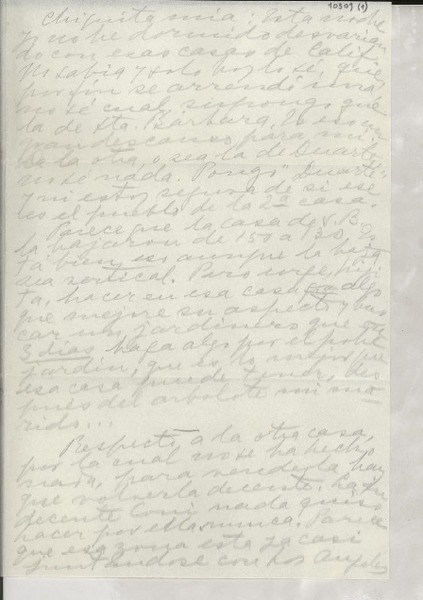 10909 (1)
Chiquita mía: Esta noche
y no he dormido desvarian
do con esas casas de Calif.
Ni sabía y solo hoy lo sé, que,
por fin se arrendó una
no sé cual, supongo que
la de Sta. Bárbara. Es
gran descanso para mí.
De la otra, o sea la de Duarte,
no sé nada. Pongo "Duarte"
y ni estoy segura de si ese
es el pueblo de la 2ª casa.
Parece que la casa de S. B.
la bajaron de 150 a 130. Es
tá bien, eso aunque la baja
sea vertical. Pero urge, hiji
ta, hacer en esa casa algo
que mejore su aspecto y bus
car un jardinero que en
3 días haga algo por el pobre
jardín, que es lo mejor que
esa casa puede tener, des
pués del arbolote mi mo
rido...
Respecto a la otra casa,
por la cual no se ha hecho
nada, para venderla hay
que volverla decente.
decente Coni nada quiso
hacer por ella nunca. Parece
que esa zona está ya casi
juntándose con Los Angeles